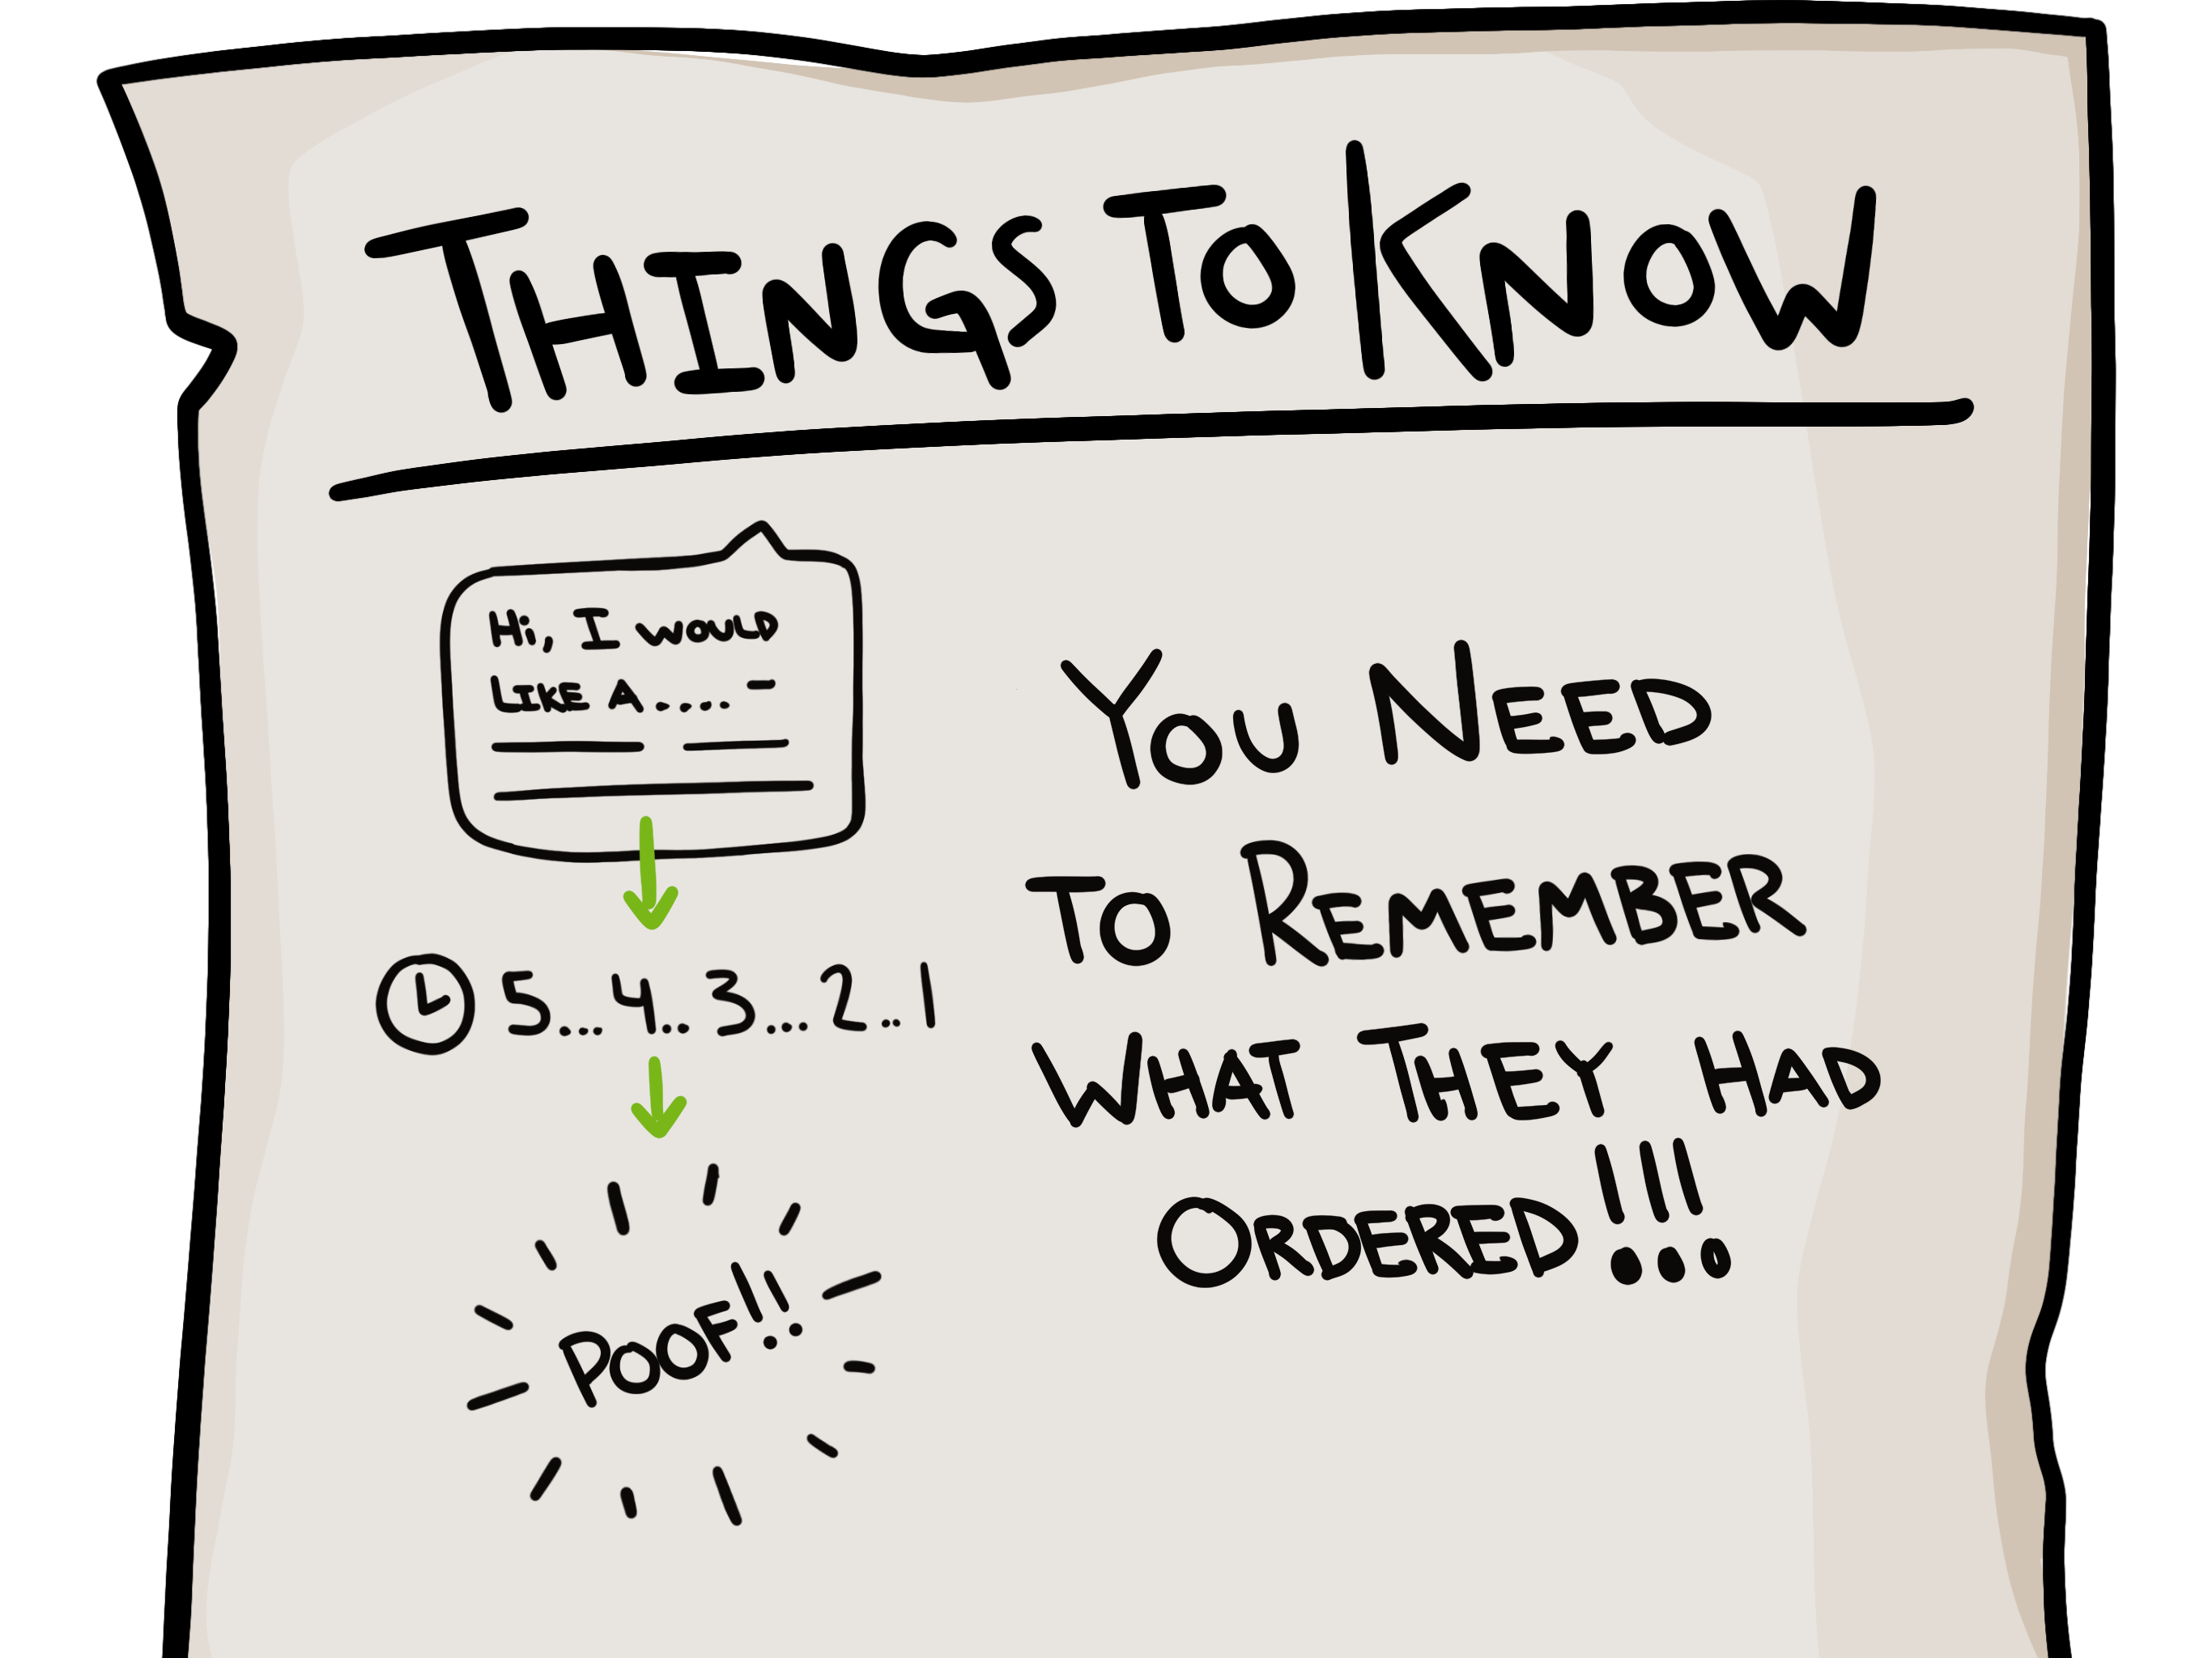 THINGS TO KNOW
Hi, I WOULD
LIKE A.....-
5... 4... 3... 2...1
POOF!!
YOU NEED
TO REMEMBER
WHAT THEY HAD
ORDERED!!!